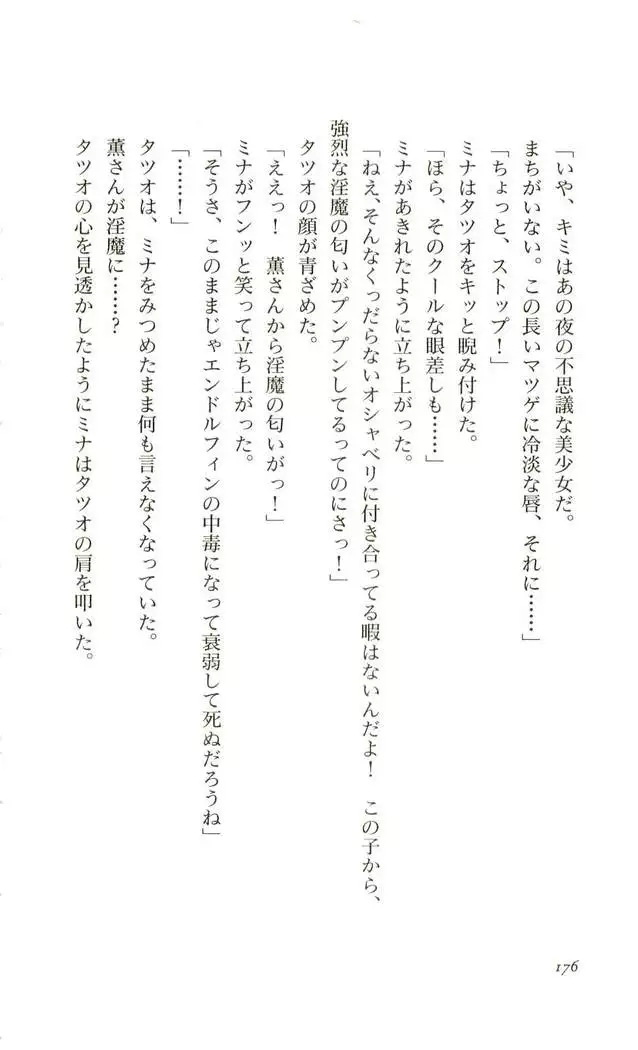 「いや、キミはあの夜の不思議な美少女だ。
まちがいない。この長いマツゲに冷淡な唇、それに……」
「ちょっと、ストップ！」
ミナはタツオをキッと睨み付けた。
「ほら、そのクールな眼差しも……」
ミナがあきれたように立ち上がった。
「ねえ、そんなくっだらないオシャベリに付き合ってる暇はないんだよ！　この子から、
強烈な淫魔の匂いがプンプンしてるってのにさっ！」
タツオの顔が青ざめた。
「ええっ！　薫さんから淫魔の匂いがっ！」
ミナがフンッと笑って立ち上がった。
「そうさ、このままじゃエンドルフィンの中毒になって衰弱して死ぬだろうね」
「……！」
タツオは、ミナをみつめたまま何も言えなくなっていた。
薫さんが淫魔に……？
タツオの心を見透かしたようにミナはタツオの肩を叩いた。
176